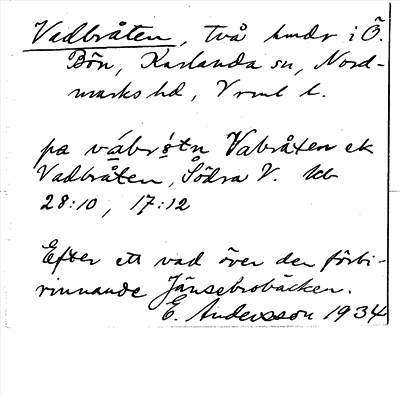 Vadbråten, två hmdr i Ö.
Bön, Karlanda sn, Nord-
marks hd, Vrml l.
pa vábrǻtn Vabråten ek
Vadbråten, Södra V.
28:10, 17:12
Efter ett vad över den förbi-
rinnande Jänsebrobäcken.
E. Andersson 1934